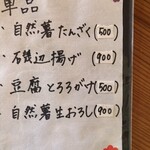 単品
・自然薯たんざく(500)
・石磯辺揚げ(900)
・豆腐とろろがけ(500)
・自然薯生おろし(900)